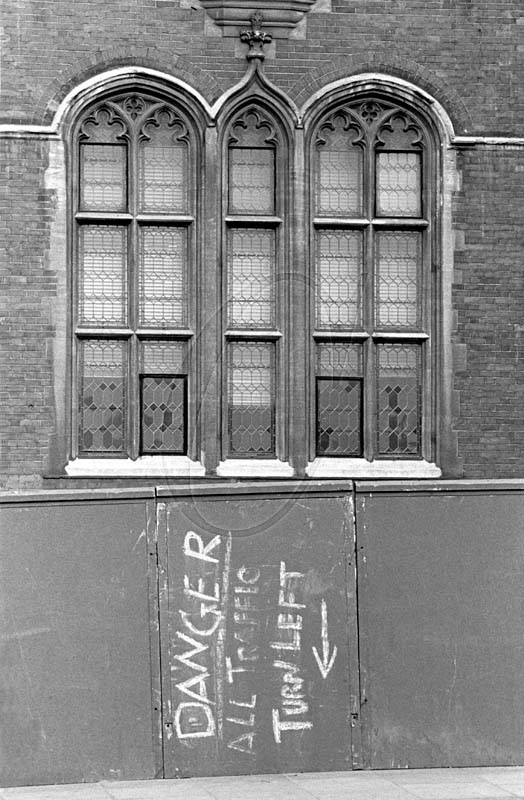 DANGER
ALL TRAFFIC
TURN LEFT